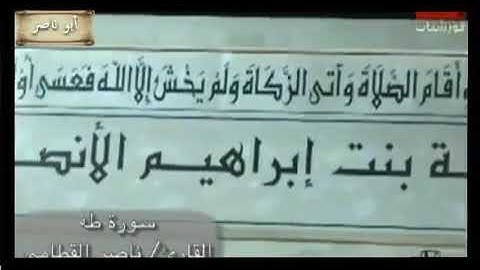 أبو ناصر
وأقام الصلاة وآتى الزكاة ولم يخش إلا الله فعسى أو
ـة بنت إبراهيم الأنصـ
سورة طه
القارئ / ناصر القطامي